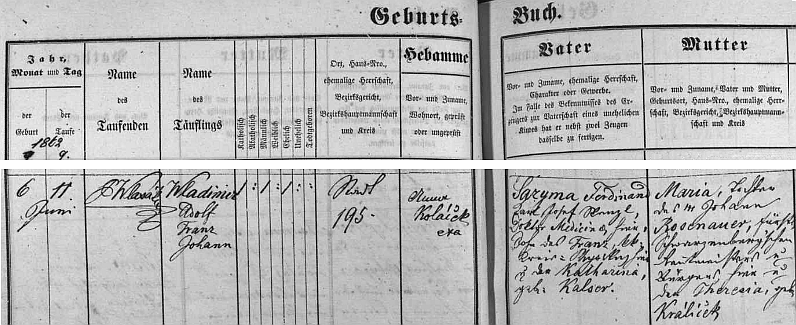 Geburts-
Buch.
Jahr,
Monat und Tag
der
Geburt
der
Taufe
1862
Name
des
Taufenden
Name
des
Täuflings
Katholisch
Akatholisch
Männlich
Weiblich
Ehelich
Unehelich
Todtgeboren
Ort, Haus-Nro.,
ehemalige Herrschaft,
Bezirksgericht,
Bezirkshauptmannschaft
und Kreis
Hebamme
Vor- und Zuname,
Wohnort, geprüft
oder ungeprüft
Vater
Vor- und Zuname, ehemalige Herrschaft,
Charakter oder Gewerbe.
Im Falle des Bekenntnisses des Er-
zeugers zur Vaterschaft eines unehelichen
Kindes hat er nebst zwei Zeugen
dasselbe zu fertigen.
Mutter
Vor- und Zuname, Vater und Mutter,
Geburtsort, Haus-Nro., ehemalige Herr-
schaft, Bezirksgericht, Bezirkshauptmann-
schaft und Kreis
6 11
Juni
Wladimir
Adolf
Franz
Johann
1 : 1 : 1 :
Stadt
195.
Anna
Koláček
exa
Ferdinand
Karl Josef
Doktor Medicinä
Sohn des Franz,
u der Katharina,
geb: Kalser.
Maria, Tochter
des Johann
Rosenauer, fürstl
Schwarzenberg'schen
u
Bürgers, hier u
der Theresia, geb
Králiček